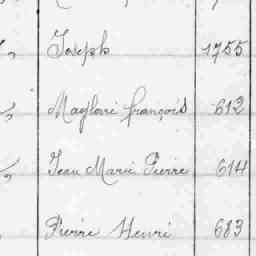 Joseph 1755
Magloire françois 612
Jean Marie Pierre 614
Pierre Henri 683